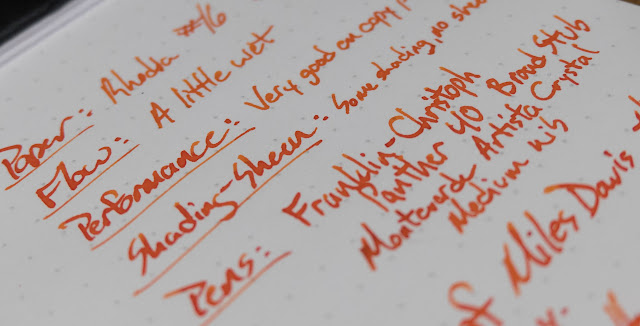 Paper: Rhodia #16
Flow: A little wet
Performance: Very good on copy
Shading-Sheen: Some shading, no
Pens: Franklin-Christoph
Panther 40 Broad Stub
Monteverde Artista Crystal
Medium nib
of Miles Davis